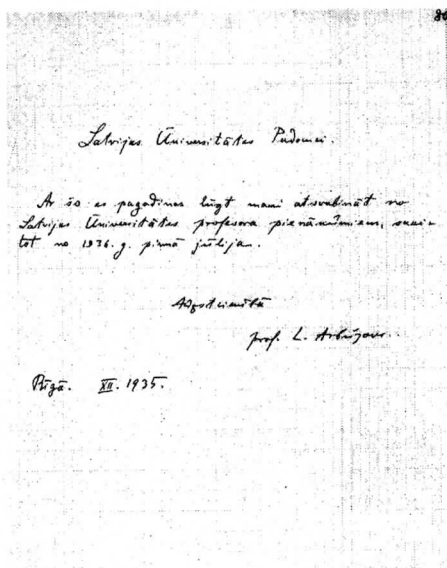 Latvijas Ūniversitātes Padomei.
Ar šo es pagodinos lūgt mani atsvabināt no
Latvijas Ūniversitātes profesora pienākumiem, skai-
tot no 1936. g. pirmā jūlija.
Augstcienībā
prof. L. Arbuzovs.
Rīgā. XII. 1935.